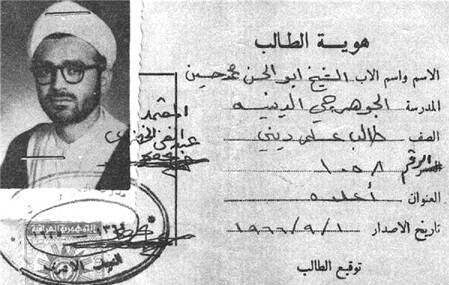 هوية الطالب
الاسم واسم الاب الشيخ ابو الحسن محمد حسين
المدرسة الجوهرجي الدينيه
الصف طالب علم ديني
الرقم ١٠٥٨
العنوان أعلاه
تاريخ الاصدار ١٩٦٦/٩/١
توقيع الطالب
المعتمد
الجمهورية العراقية
النجف الاشرف